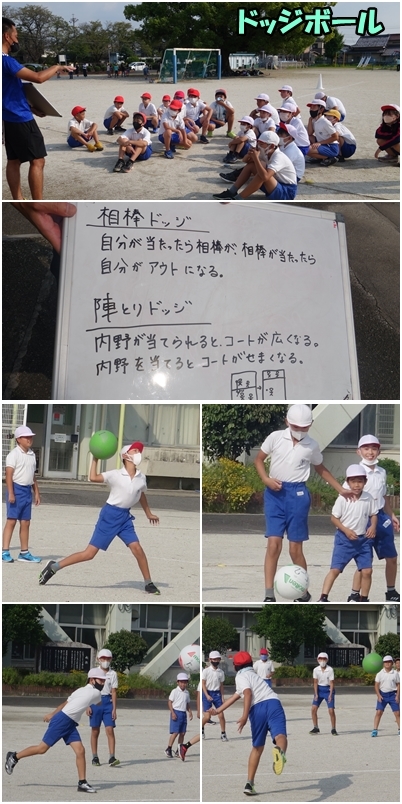 ドッジボール
相棒ドッジ
自分が当たったら相棒が、相棒が当たったら
自分が アウトになる。
陣とりドッジ
内野が当てられると、コートが広くなる。
内野を当てるとコートがせまくなる。